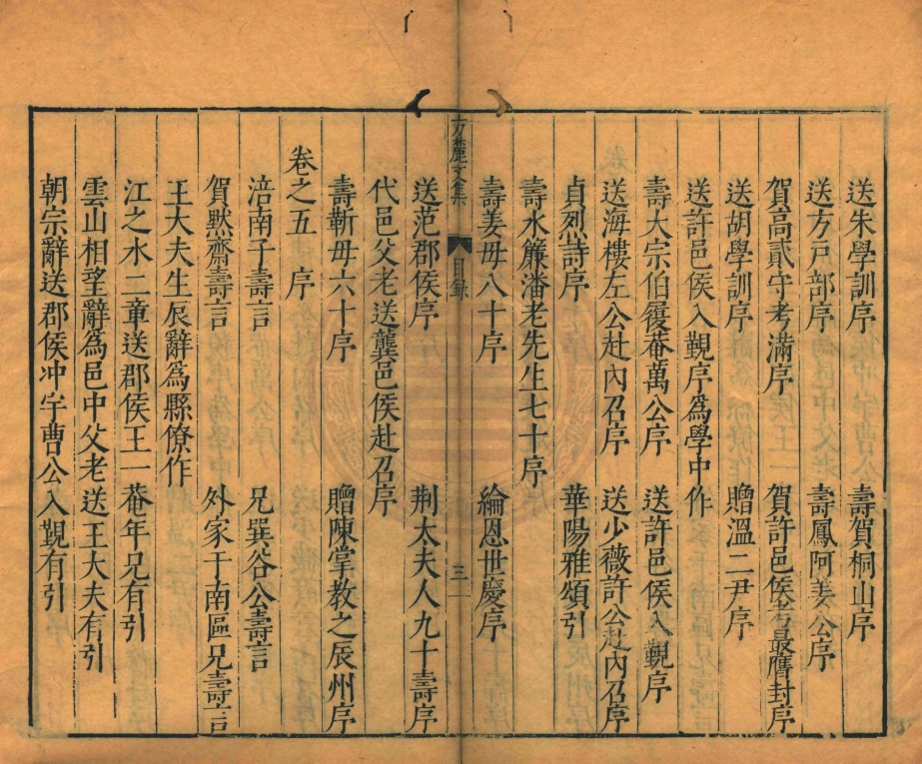 送朱學訓序　壽賀桐山序
送方戸部序　壽鳳阿姜公序
賀高貳守考滿序　賀許邑侯考最膺封序
送胡學訓序　贈溫二尹序
送許邑侯入覲序爲學中作
壽大宗伯履菴萬公序　送許邑侯入覲序
送海樓左公赴內召序　送少薇許公赴內召序
貞烈詩序　華陽雅頌引
壽水簾潘老先生七十序
壽姜毋八十序　綸恩世慶序
方麓文集　目録　三
送范郡侯序　荆太夫人九十壽序
代邑父老送龔邑侯赴召序
壽靳毋六十序　贈陳掌教之辰州序
卷之五　序
涪南子壽言　兄巽谷公壽言
賀默齋壽言　外家干南區兄壽言
王大夫生辰辭爲縣僚作
江之水二章送郡侯王一菴年兄有引
雲山相望辭爲邑中父老送王大夫有引
朝宗辭送郡侯冲宇曹公入覲有引